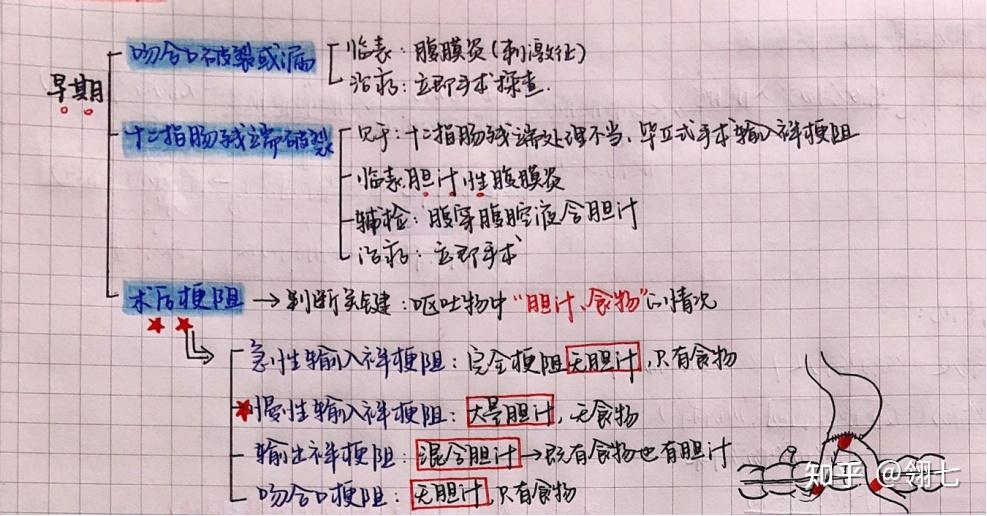 早期
吻合口破裂或漏
临表：腹膜炎(刺激征)
治疗：立即手术探查.
十二指肠残端破裂
见于：十二指肠残端处理不当，毕Ⅱ式手术输入袢梗阻
临表.胆汁性腹膜炎
辅检：腹穿腹腔液含胆汁
治疗：立即手术
术后梗阻→判断关键：呕吐物中“胆汁、食物”的情况
急性输入袢梗阻：完全梗阻无胆汁，只有食物
慢性输入袢梗阻：大量胆汁，无食物
输出袢梗阻：混合胆汁→既有食物也有胆汁
吻合口梗阻：无胆汁，只有食物
知乎 @翎七